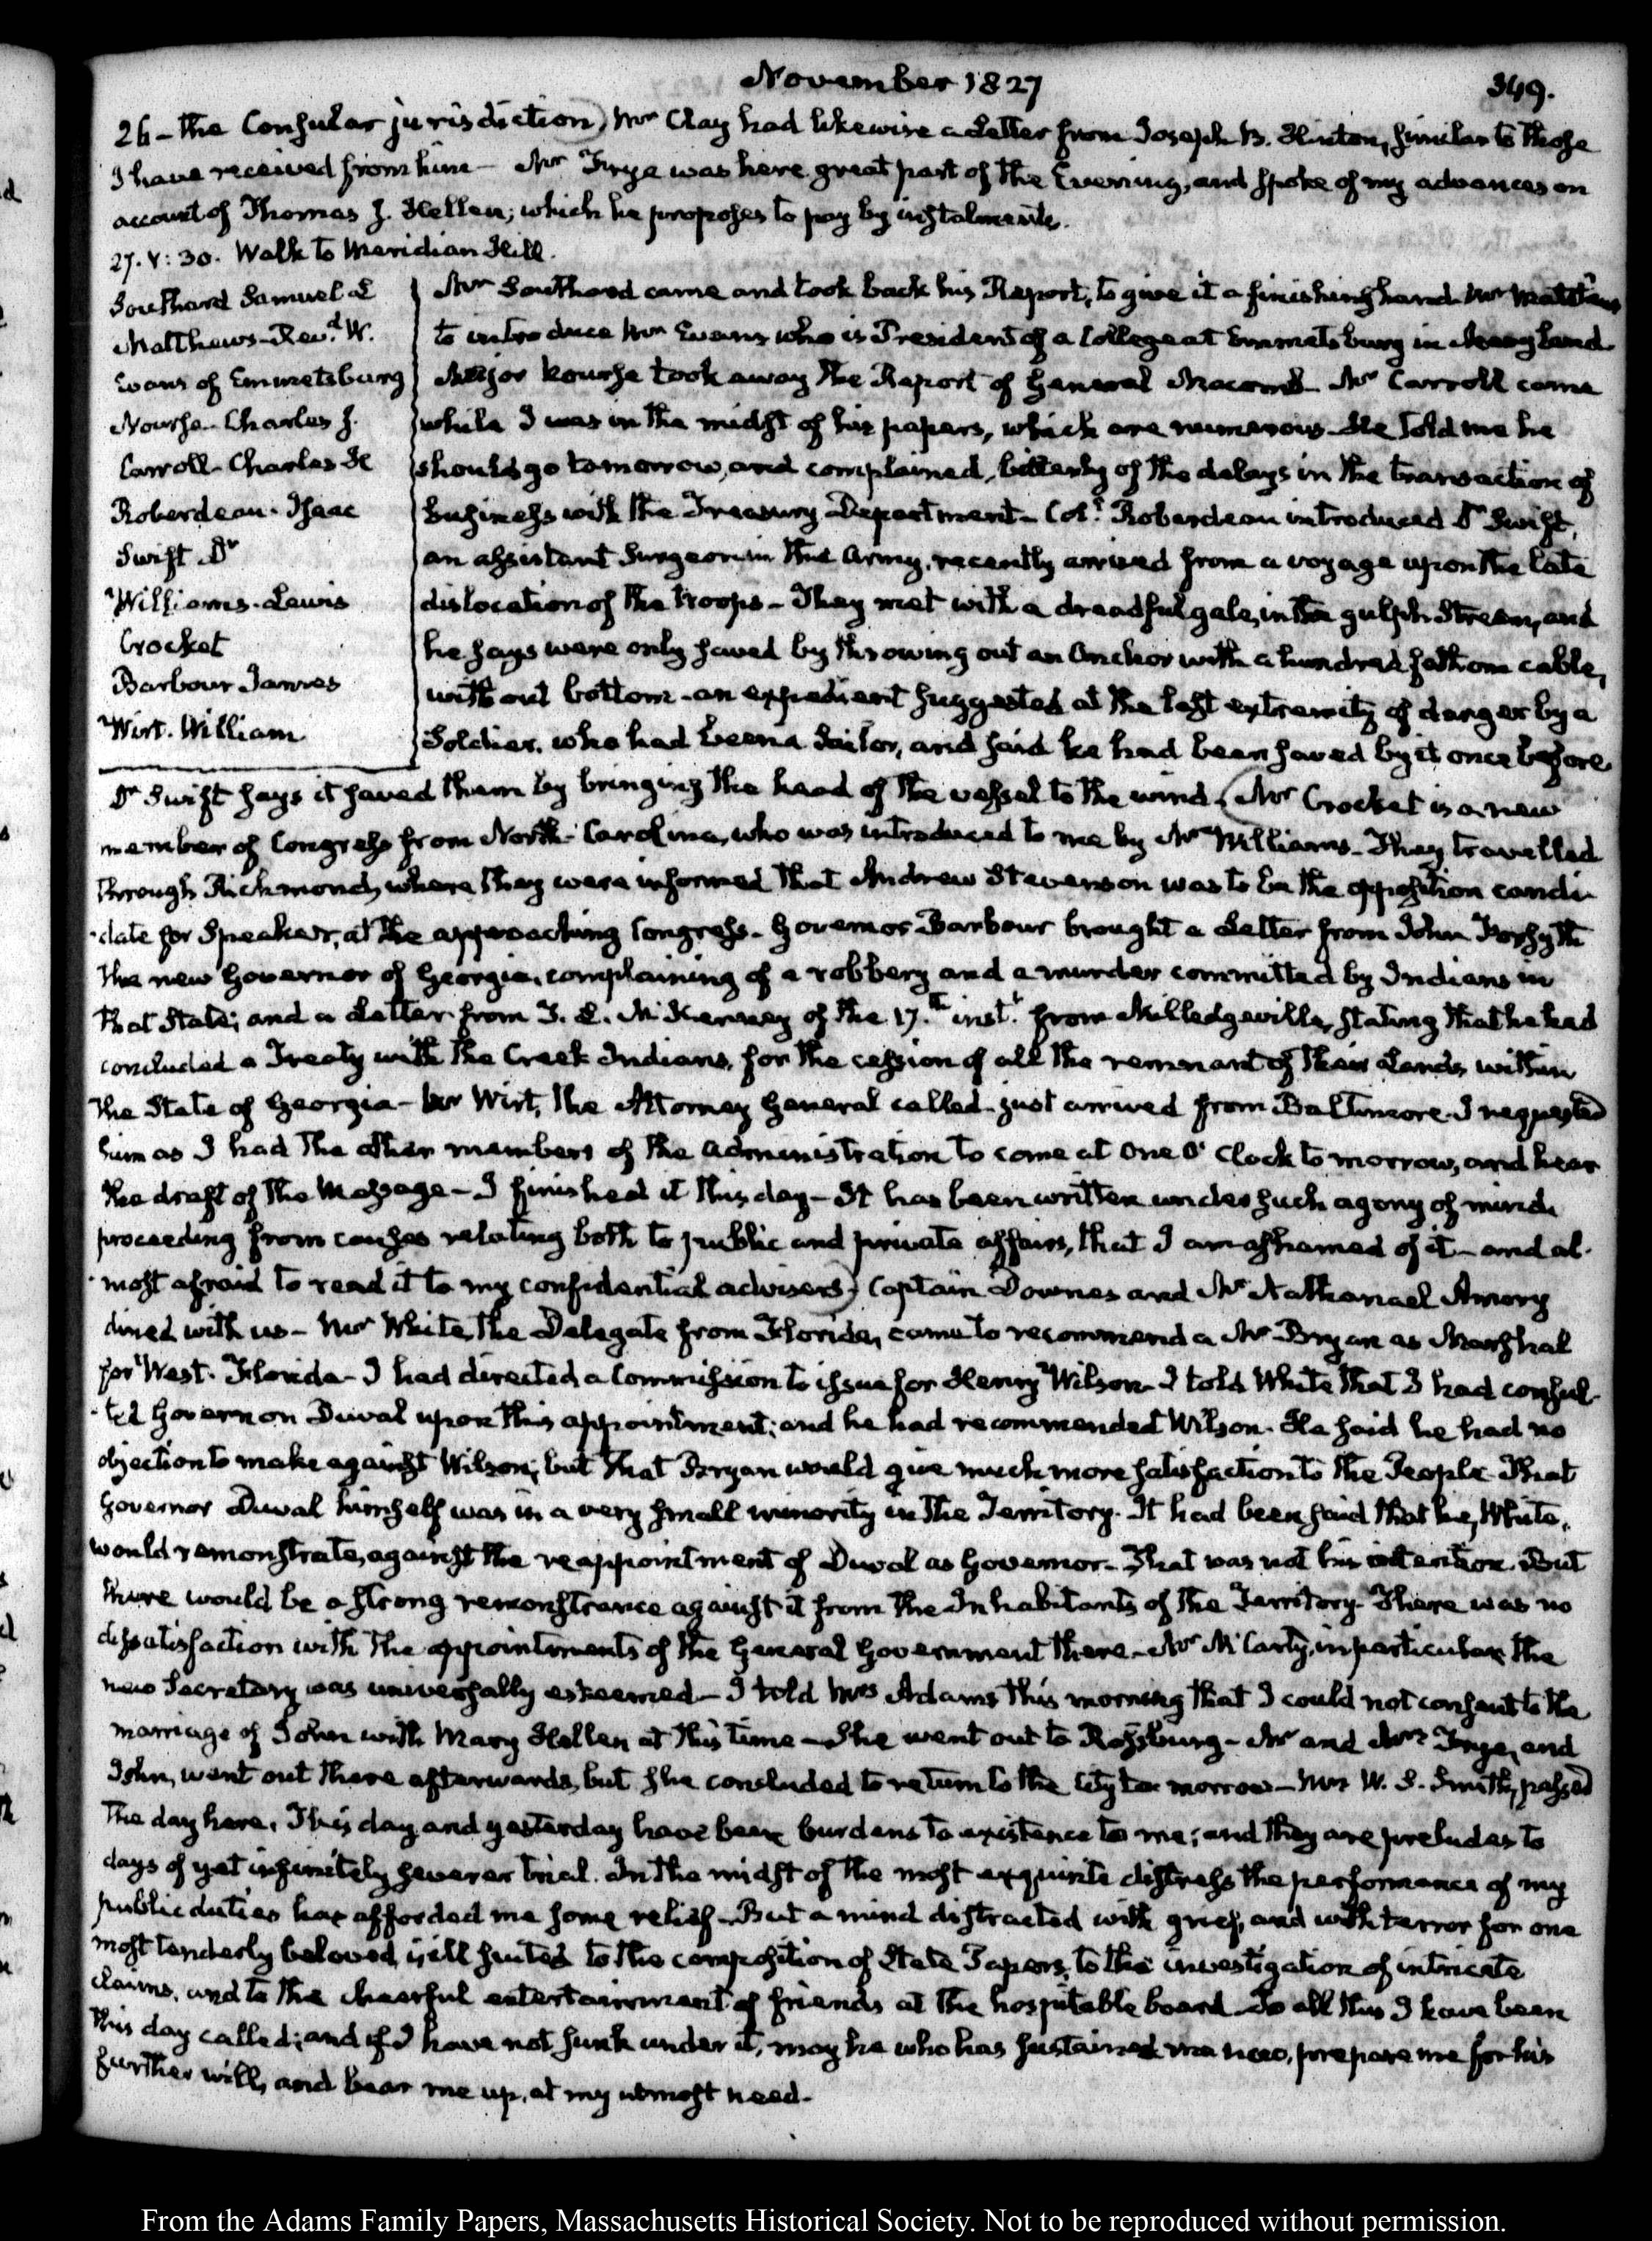 November 1827
349.
26 - the Consular jurisdiction) Mr Clay had likewise a Letter from Joseph B. Hinton, similar to those
I have received from him - Mr Frye was here great part of the Evening, and spoke of my advances on
account of Thomas J. Hellen; which he proposes to pay by instalments.
27. V: 30. Walk to Meridian Hill.
Southard Samuel L
Matthews - Revd. W.
Evans of Emmetsburg
Nourse - Charles J.
Carroll - Charles H
Roberdeau - Isaac
Swift Dr
Williams - Lewis
Crocket
Barbour James
Wirt. William
Mr Southard came and took back his Report, to give it a finishing hand - Mr Matthews
to introduce Mr Evans who is President of a College at Emmetsburg in Maryland.
Major Nourse took away the Report of General Macomb - Mr Carroll came
while I was in the midst of his papers, which are numerous - He told me he
should go tomorrow, and complained, bitterly of the delays in the transaction of
business with the Treasury Department - Col. Roberdeau introduced Dr Swift,
an assistant Surgeon in the Army, recently arrived from a voyage upon the late
dislocation of the troops - They met with a dreadful gale, in the gulph Stream, and
he says were only saved by throwing out an Anchor with a hundred fathom cable,
without bottom - an expedient suggested at the last extremity of danger by a
Soldier, who had been a Sailor, and said he had been saved by it once before.
Dr Swift says it saved them by bringing the head of the vessel to the wind. (Mr Crocket is a new
member of Congress from North-Carolina, who was introduced to me by Mr Williams - They travelled
through Richmond, where they were informed that Andrew Stevenson was to be the opposition candi-
-date for Speaker, at the approaching Congress - Governor Barbour brought a Letter from John Forsyth
the new Governor of Georgia, complaining of a robbery and a murder committed by Indians in
that State; and a Letter from T. L. McKenney of the 17.th inst.t from Milledgeville, stating that he had
concluded a Treaty with the Creek Indians, for the cession of all the remnant of their Lands, within
the State of Georgia - Mr Wirt, the Attorney General called - just arrived from Baltimore. I requested
him as I had the other members of the administration to come at One O' Clock to morrow, and hear
the draft of the Message - I finished it this day - It has been written under such agony of mind,
proceeding from causes relating both to public and private affairs, that I am ashamed of it - and al-
-most afraid to read it to my confidential advisers) Captain Downes and Mr Nathanael Amory
dined with us - Mr White, the Delegate from Florida, came to recommend a Mr Bryan as Marshal
for West-Florida - I had directed a Commission to issue for Henry Wilson - I told White that I had consul-
-ted Governor Duval upon this appointment; and he had recommended Wilson. He said he had no
objection to make against Wilson; but that Bryan would give much more satisfaction to the People - That
Governor Duval himself was in a very small minority in the Territory. It had been said that he, White,
would remonstrate, against the reappointment of Duval as Governor - That was not his intention. But
there would be a strong remonstrance against it from the Inhabitants of the Territory. There was no
dissatisfaction with the appointments of the General Government there - Mr McCarty, in particular, the
new Secretary was universally esteemed - I told Mrs Adams this morning that I could not consent to the
marriage of John with Mary Hellen at this time - She went out to Rossburg - Mr and Mrs Frye, and
John, went out there afterwards, but she concluded to return to the City to morrow - Mrs W. S. Smith, passed
the day here. This day and yesterday have been burdens to existence to me; and they are preludes to
days of yet infinitely severer trial. In the midst of the most exquisite distress the performance of my
public duties has afforded me some relief - But a mind distracted with grief, and with terror for one
most tenderly beloved, is ill suited to the composition of State Papers, to the investigation of intricate
claims, and to the cheerful entertainment of friends at the hospitable board - To all this I have been
this day called; and if I have not sunk under it, may he who has sustained me now, prepare me for his
further will, and bear me up, at my utmost need -
From the Adams Family Papers, Massachusetts Historical Society. Not to be reproduced without permission.